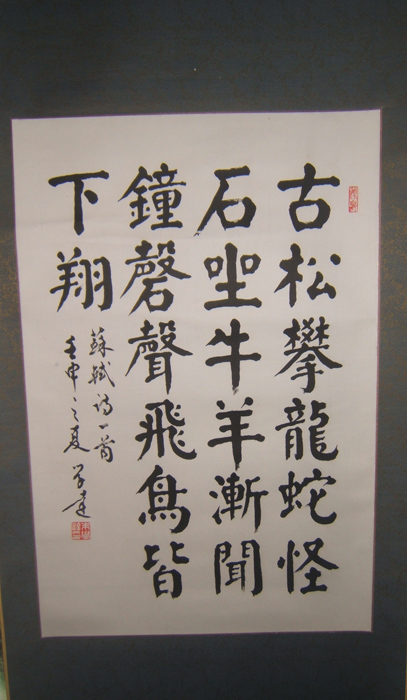 古松攀龍蛇怪
石坐牛羊漸聞
鐘磬聲飛鳥皆
下翔
蘇軾詩一首
壬申之夏 學達